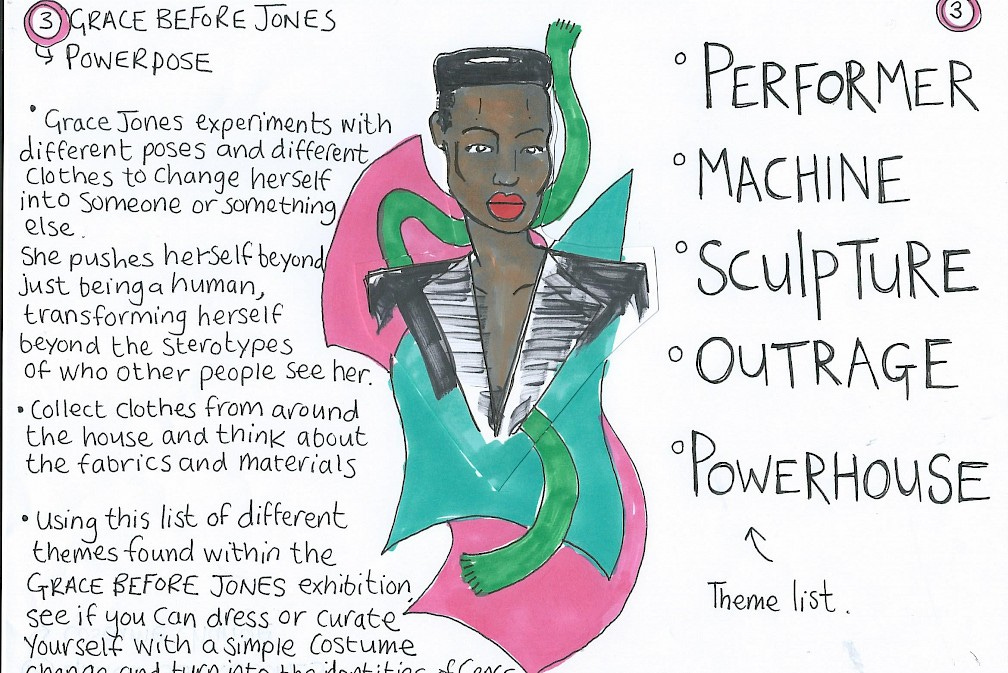 3 GRACE BEFORE JONES
↳ POWERPOSE
• Grace Jones experiments with
different poses and different
clothes to change herself
into someone or something
else.
She pushes herself beyond
just being a human,
transforming herself
beyond the sterotypes
of who other people see her.
• Collect clothes from around
the house and think about
the fabrics and materials
• Using this list of different
themes found within the
GRACE BEFORE JONES exhibition,
see if you can dress or curate
yourself with a simple costume
change and turn into the identities of Grace
3
° PERFORMER
° MACHINE
° SCULPTURE
° OUTRAGE
° POWERHOUSE
Theme list.